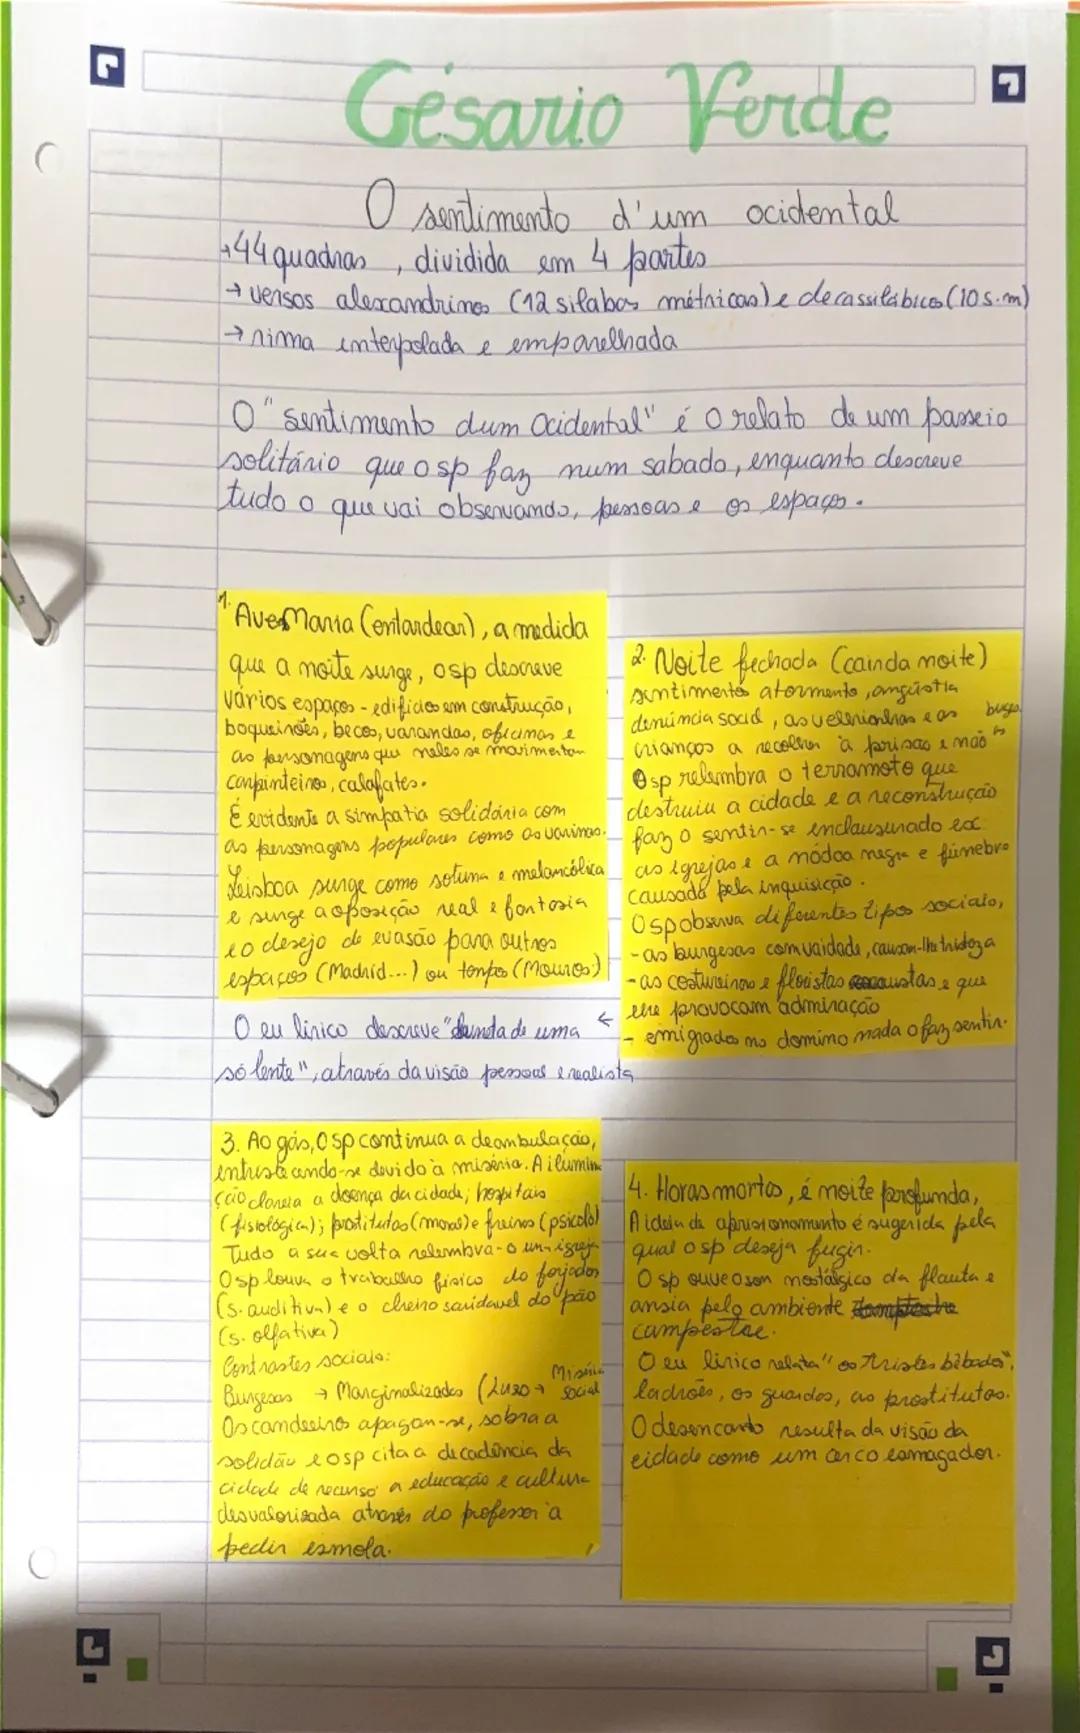 Césario Verde
O sentimento d'um ocidental
→44 quadras, dividida em 4 partes
→ versos alexandrinos (12 silabas métricas) e decassilábicos (10 s.m)
→ rima interpolada e emparelhada
O "sentimento dum Ocidental" é o relato de um passeio
solitário que o sp faz num sabado, enquanto descreve
tudo o que vai observando, pessoas e os espaços.
1. Ave Maria (entardecer), a medida
que a noite surge, o sp descreve
vários espaços - edifidios em construção,
boqueirões, becos, varandas, oficinas e
as personagens que neles se movimentam
carpinteiros, calafates.
É evidente a simpatia solidária com
as personagens populares como as varinas.
Leisboa surge como soturna e melancólica
e surge a oposição real e fantasia
e o desejo de evasão para outros
espaços (Madrid...) ou tempos (Mouros)
2. Noite fechada (cainda noite)
sentimentos atormento, angústia
denúncia social, as velhinhas e as
crianças a recolher à prisão e não
as burgs.
O sp relembra o terramoto que
destruiu a cidade e a reconstrução
faz o sentir-se enclausurado ex
as igrejas e a nódoa negra e fúnebre
causada pela inquisição.
O sp observa diferentes tipos sociais,
- as burgesas com vaidade, causam-lhe tristeza
- as costureiras e floristas e que
lhe provocam admiração
- emigrados no domino nada o faz sentir.
O eu lírico descreve "de uma
só lente", através da visão pessoal e realista
←
3. Ao gás, O sp continua a deambulação,
entristecendo-se devido à miséria. A ilumina
ção clareia a doença da cidade; hospitais
(fisiológica); prostitutas (moral) e freiras (psicoló)
Tudo a sua volta relembra-o uma igreja
O sp louva o trabalho fisico do forjador
(s. auditiva) e o cheiro saudavel do pão
(s. olfativa)
Contrastes sociais:
Burgesas → Marginalizados (luxo → Miséria social
Os candeeiros apagam-se, sobra a
solidão e o sp cita a decadência da
cidade de recurso a educação e cultura
desvalorizada através do professor a
pedir esmola.
4. Horas mortas, é noite profunda,
A ideia de aprisionamento é sugerida pela
qual o sp deseja fugir.
O sp ouve o som nostálgico da flauta e
ansia pelo ambiente
campestre.
O eu lirico relata "os tristes bêbados",
ladrões, os guardas, as prostitutas.
O desencanto resulta da visão da
cidade como um cerco esmagador.